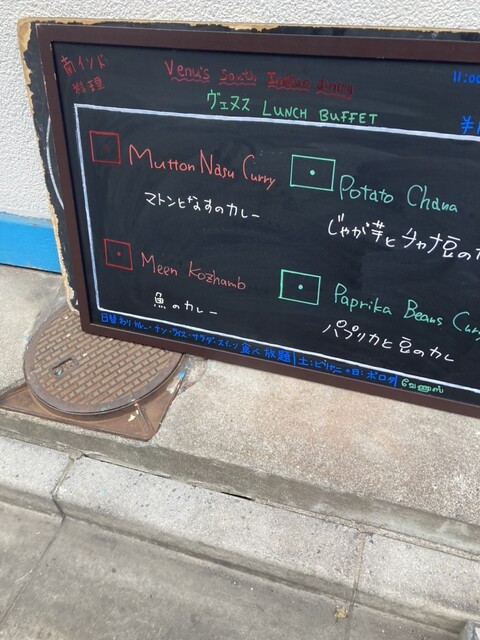 南インド
料理
Venu's South Indian Dining
11:00
ヴェヌス LUNCH BUFFET
Mutton Nasu Curry
マトンとなすのカレー
Potato Chana
じゃが芋とチャナ豆の
Meen Kozhamb
魚のカレー
Paprika Beans Curry
パプリカと豆のカレ
日替わりカレー・ナン・ライス・サラダ・スイーツ食べ放題